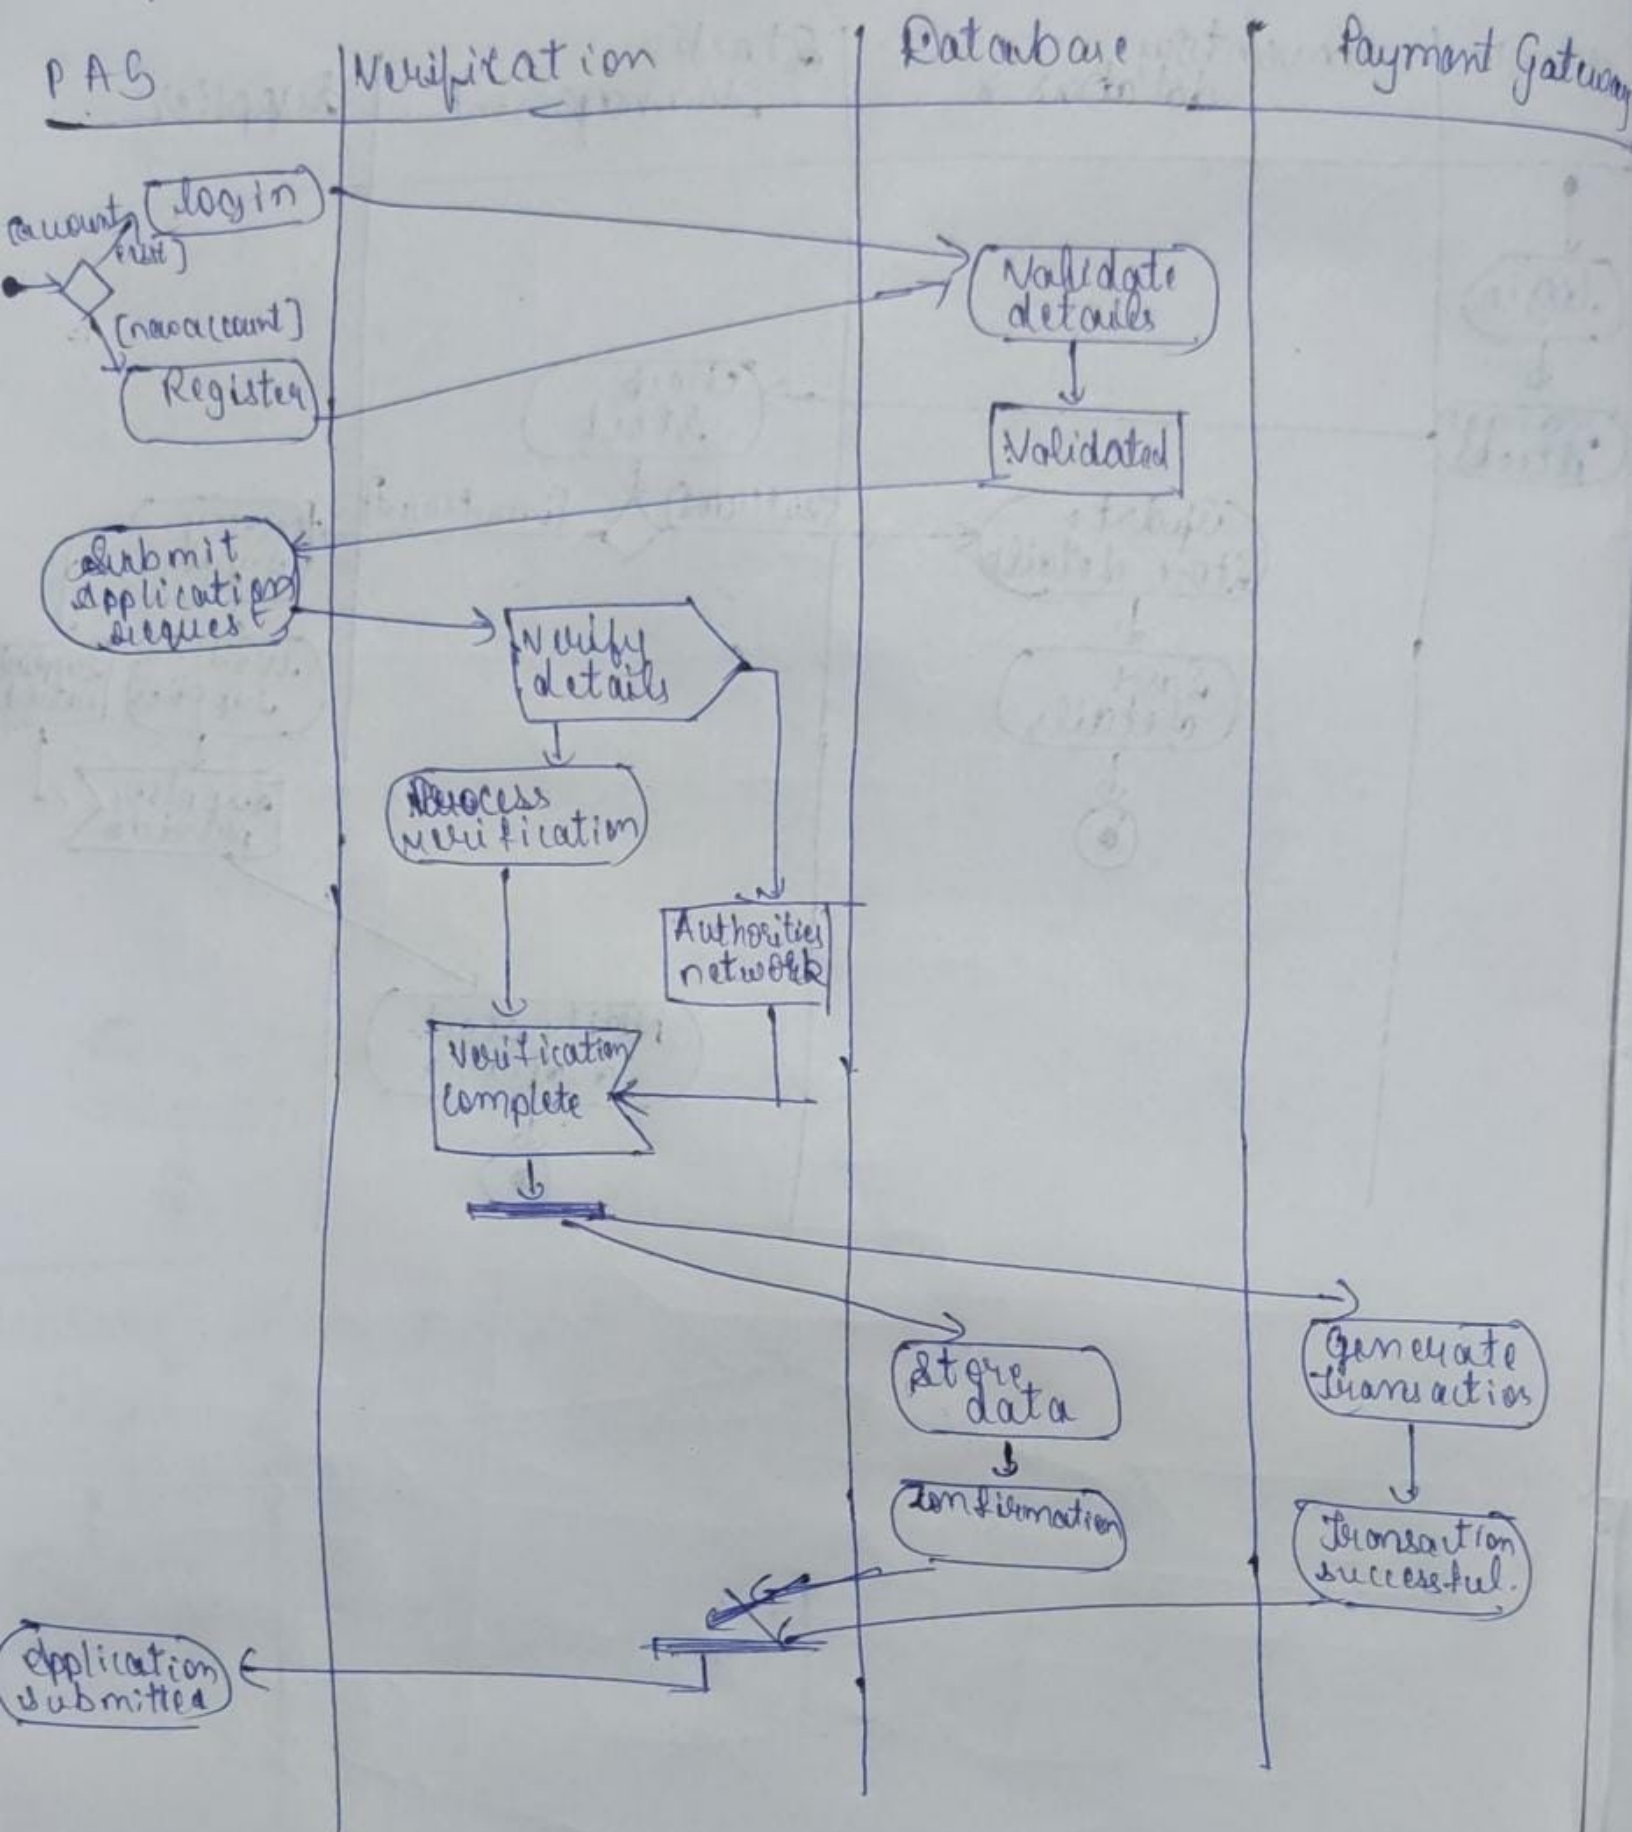 PAS
Verification
Database
Payment Gateway
login
[account
exist]
[new account]
Register
Validate
details
Validated
Submit
Application
request
Verify
details
Process
verification
Authorities
network
Verification
complete
Store
data
Generate
Transaction
Confirmation
Transaction
successful.
Application
submitted